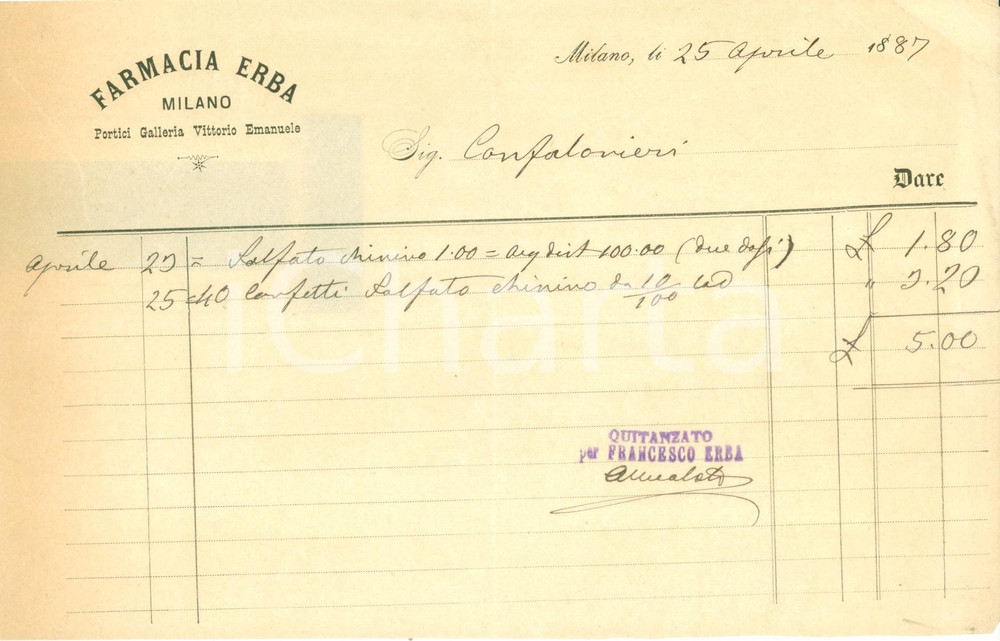 FARMACIA ERBA
MILANO
Portici Galleria Vittorio Emanuele
Milano, li 25 Aprile 1887
Sig. Confalonieri
Dare
Aprile 25 = Solfato chinino 1.00 = aq dist 100.00 (due dosi) £ 1.80
25 = 40 Confetti Solfato chinino da 10/100 cad " 3.20
£ 5.00
iCharta
QUITANZATO
per FRANCESCO ERBA